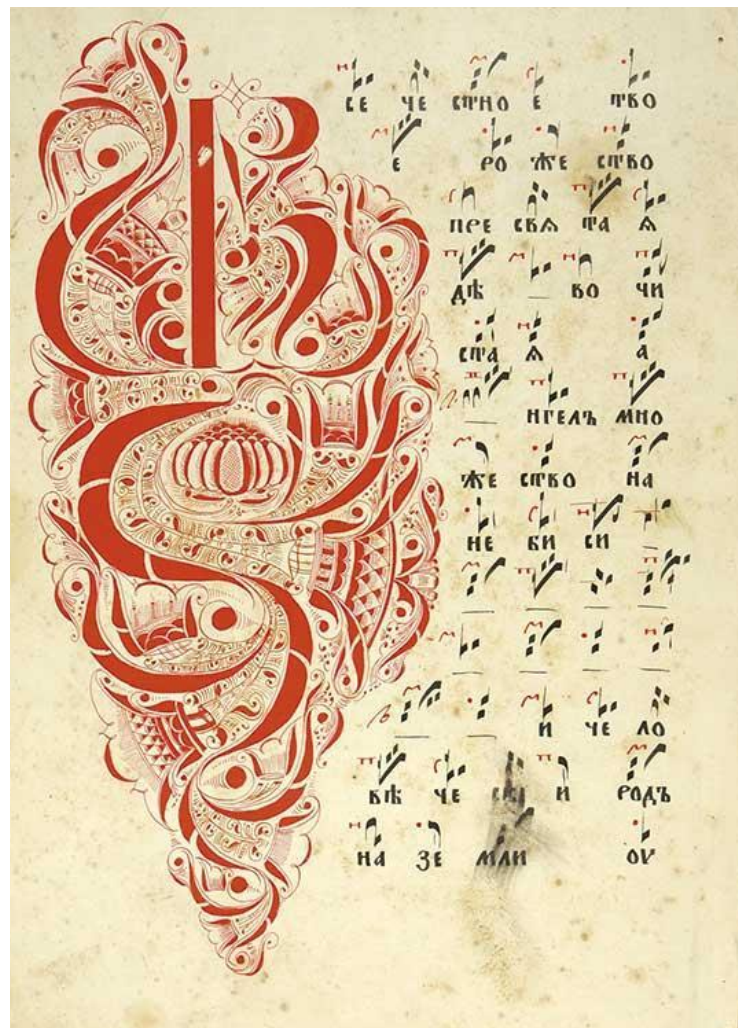 В СЕ ЧЕ СТНО Е ТВО
Е РО ЖЕ СТВО
ПРЕ СВѦ ТА Ѧ
ДѢ ВО ЧИ
СТА Ѧ А
НГЕЛЪ МНО
ЖЕ СТВО НА
НЕ БИ СИ
И ЧЕ ЛО
ВѢ ЧЕ И РОДЪ
НА ЗЕ МЛИ ОУ